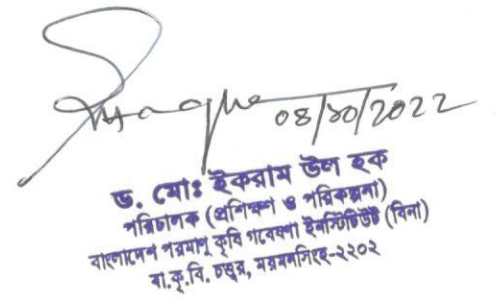 08/10/2022
ড. মোঃ ইকরাম উল হক
পরিচালক (প্রশিক্ষণ ও পরিকল্পনা)
বাংলাদেশ পরমাণু কৃষি গবেষণা ইনস্টিটিউট (বিনা)
বা.কৃ.বি. চত্বর, ময়মনসিংহ-২২০২